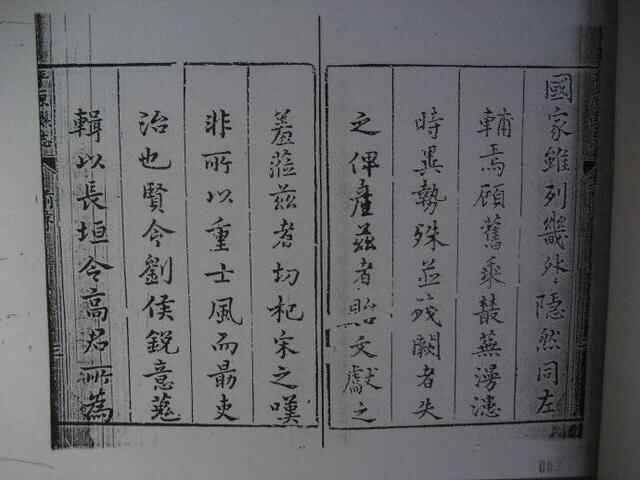 國家雖列畿外隱然同左
輔焉顧舊乘叢蕪漫漶
時異勢殊並殘闕者失
之俾產茲者貽文獻之
羞蒞茲者切杞宋之嘆
非所以重士風而勗吏
治也賢令劉侯銳意蒐
輯以長垣令高君所為
原縣志